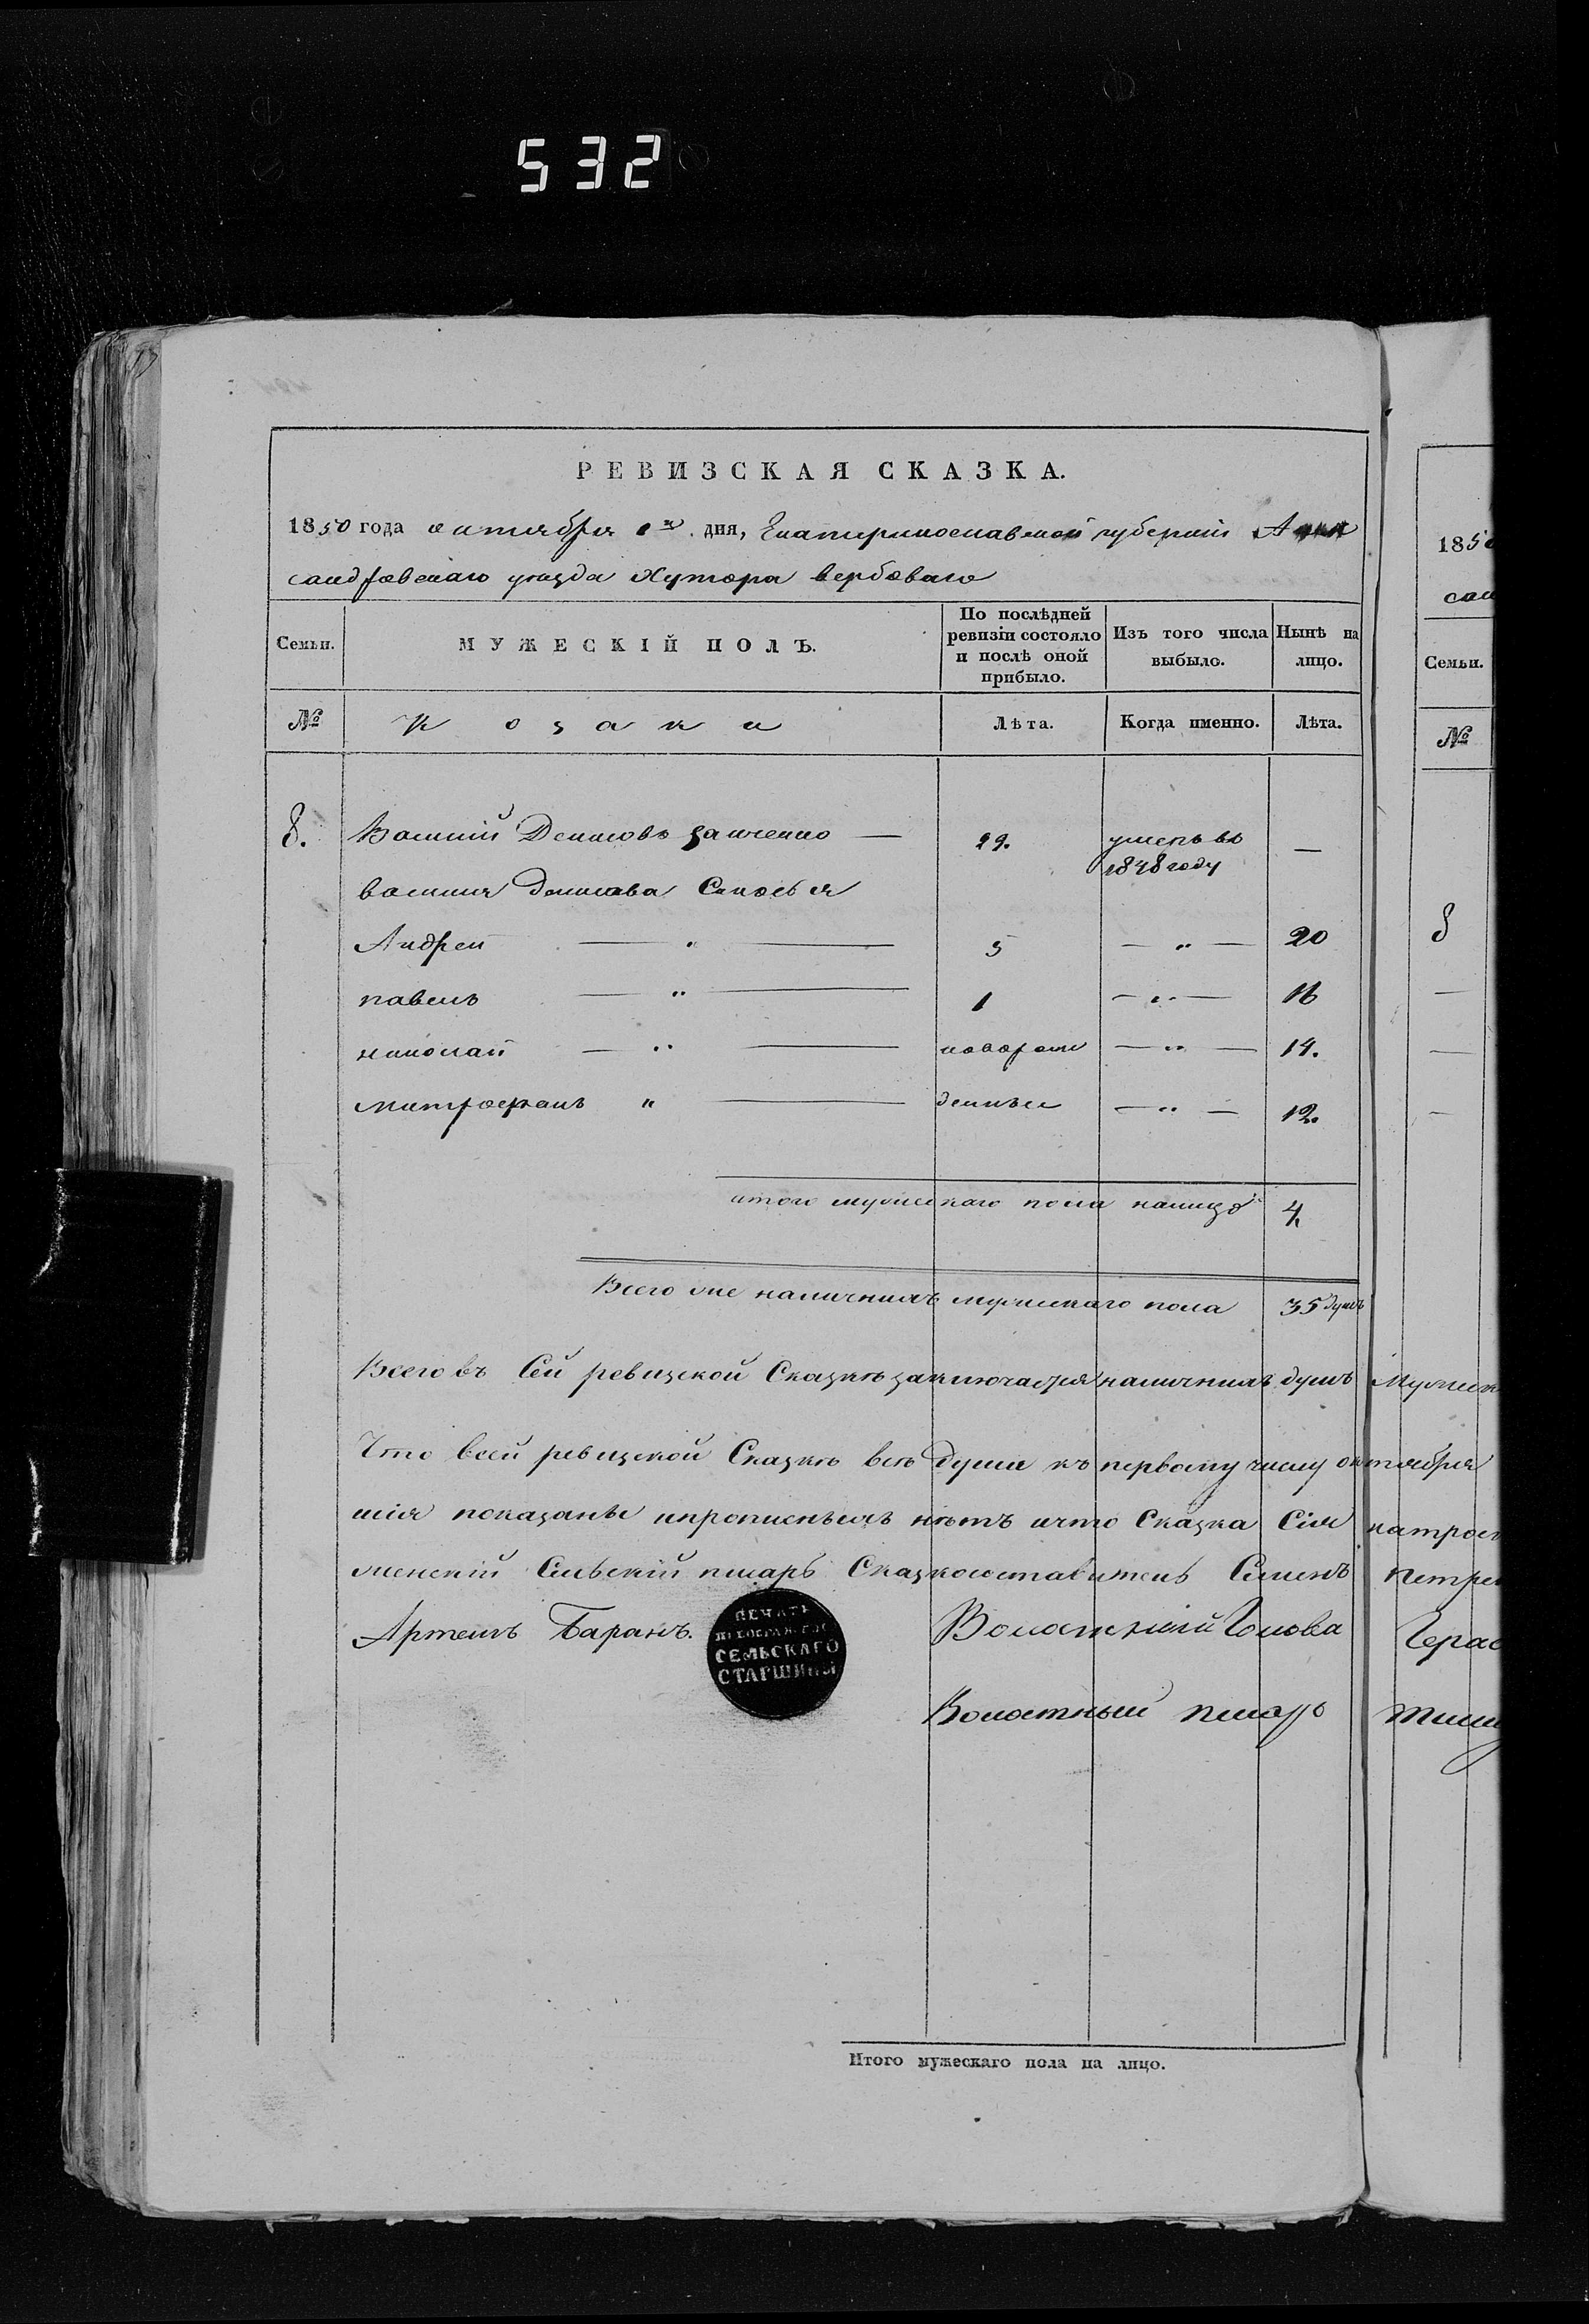 532
РЕВИЗСКАЯ СКАЗКА.
1850 года октября 1го дня, Екатеринославской губерніи Алек
сандровскаго уезда Хутора вербоваго
Семьи.
МУЖЕСКІЙ ПОЛЪ.
По послѣдней
ревизіи состояло
и послѣ оной
прибыло.
Изъ того числа
выбыло.
Нынѣ на
лицо.
№
Козаки
Лѣта.
Когда именно.
Лѣта.
8. Василий Денисовъ — 29. умеръ въ —
1848 году
василия денисова Сыновья
Андрей — " — 5 — " — 20
павелъ — " — 1 — " — 16
николай — " — новорож — " — 14.
митрофанъ " — денные — " — 12.
итого мужескаго пола налицо 4
Всего же наличныхъ мужескаго пола 35 душъ
Всего въ Сей ревизской Сказкѣ заключается наличныхъ душъ Мужеск
Что всей ревизской Сказкѣ всѣ души къ первому числу октября
шія показаны ипрописныхъ нѣтъ ичто Сказка Сія
Сельскій писарь Сказкосоставитель Семенъ Петре
Артемъ Баранъ. Волостный Голова Герас
ПЕЧАТЬ
СЕЛЬСКАГО
СТАРШИНЫ
Волостный писарь
Итого мужескаго пола на лицо.
1850
сан
Семьи.
№
8